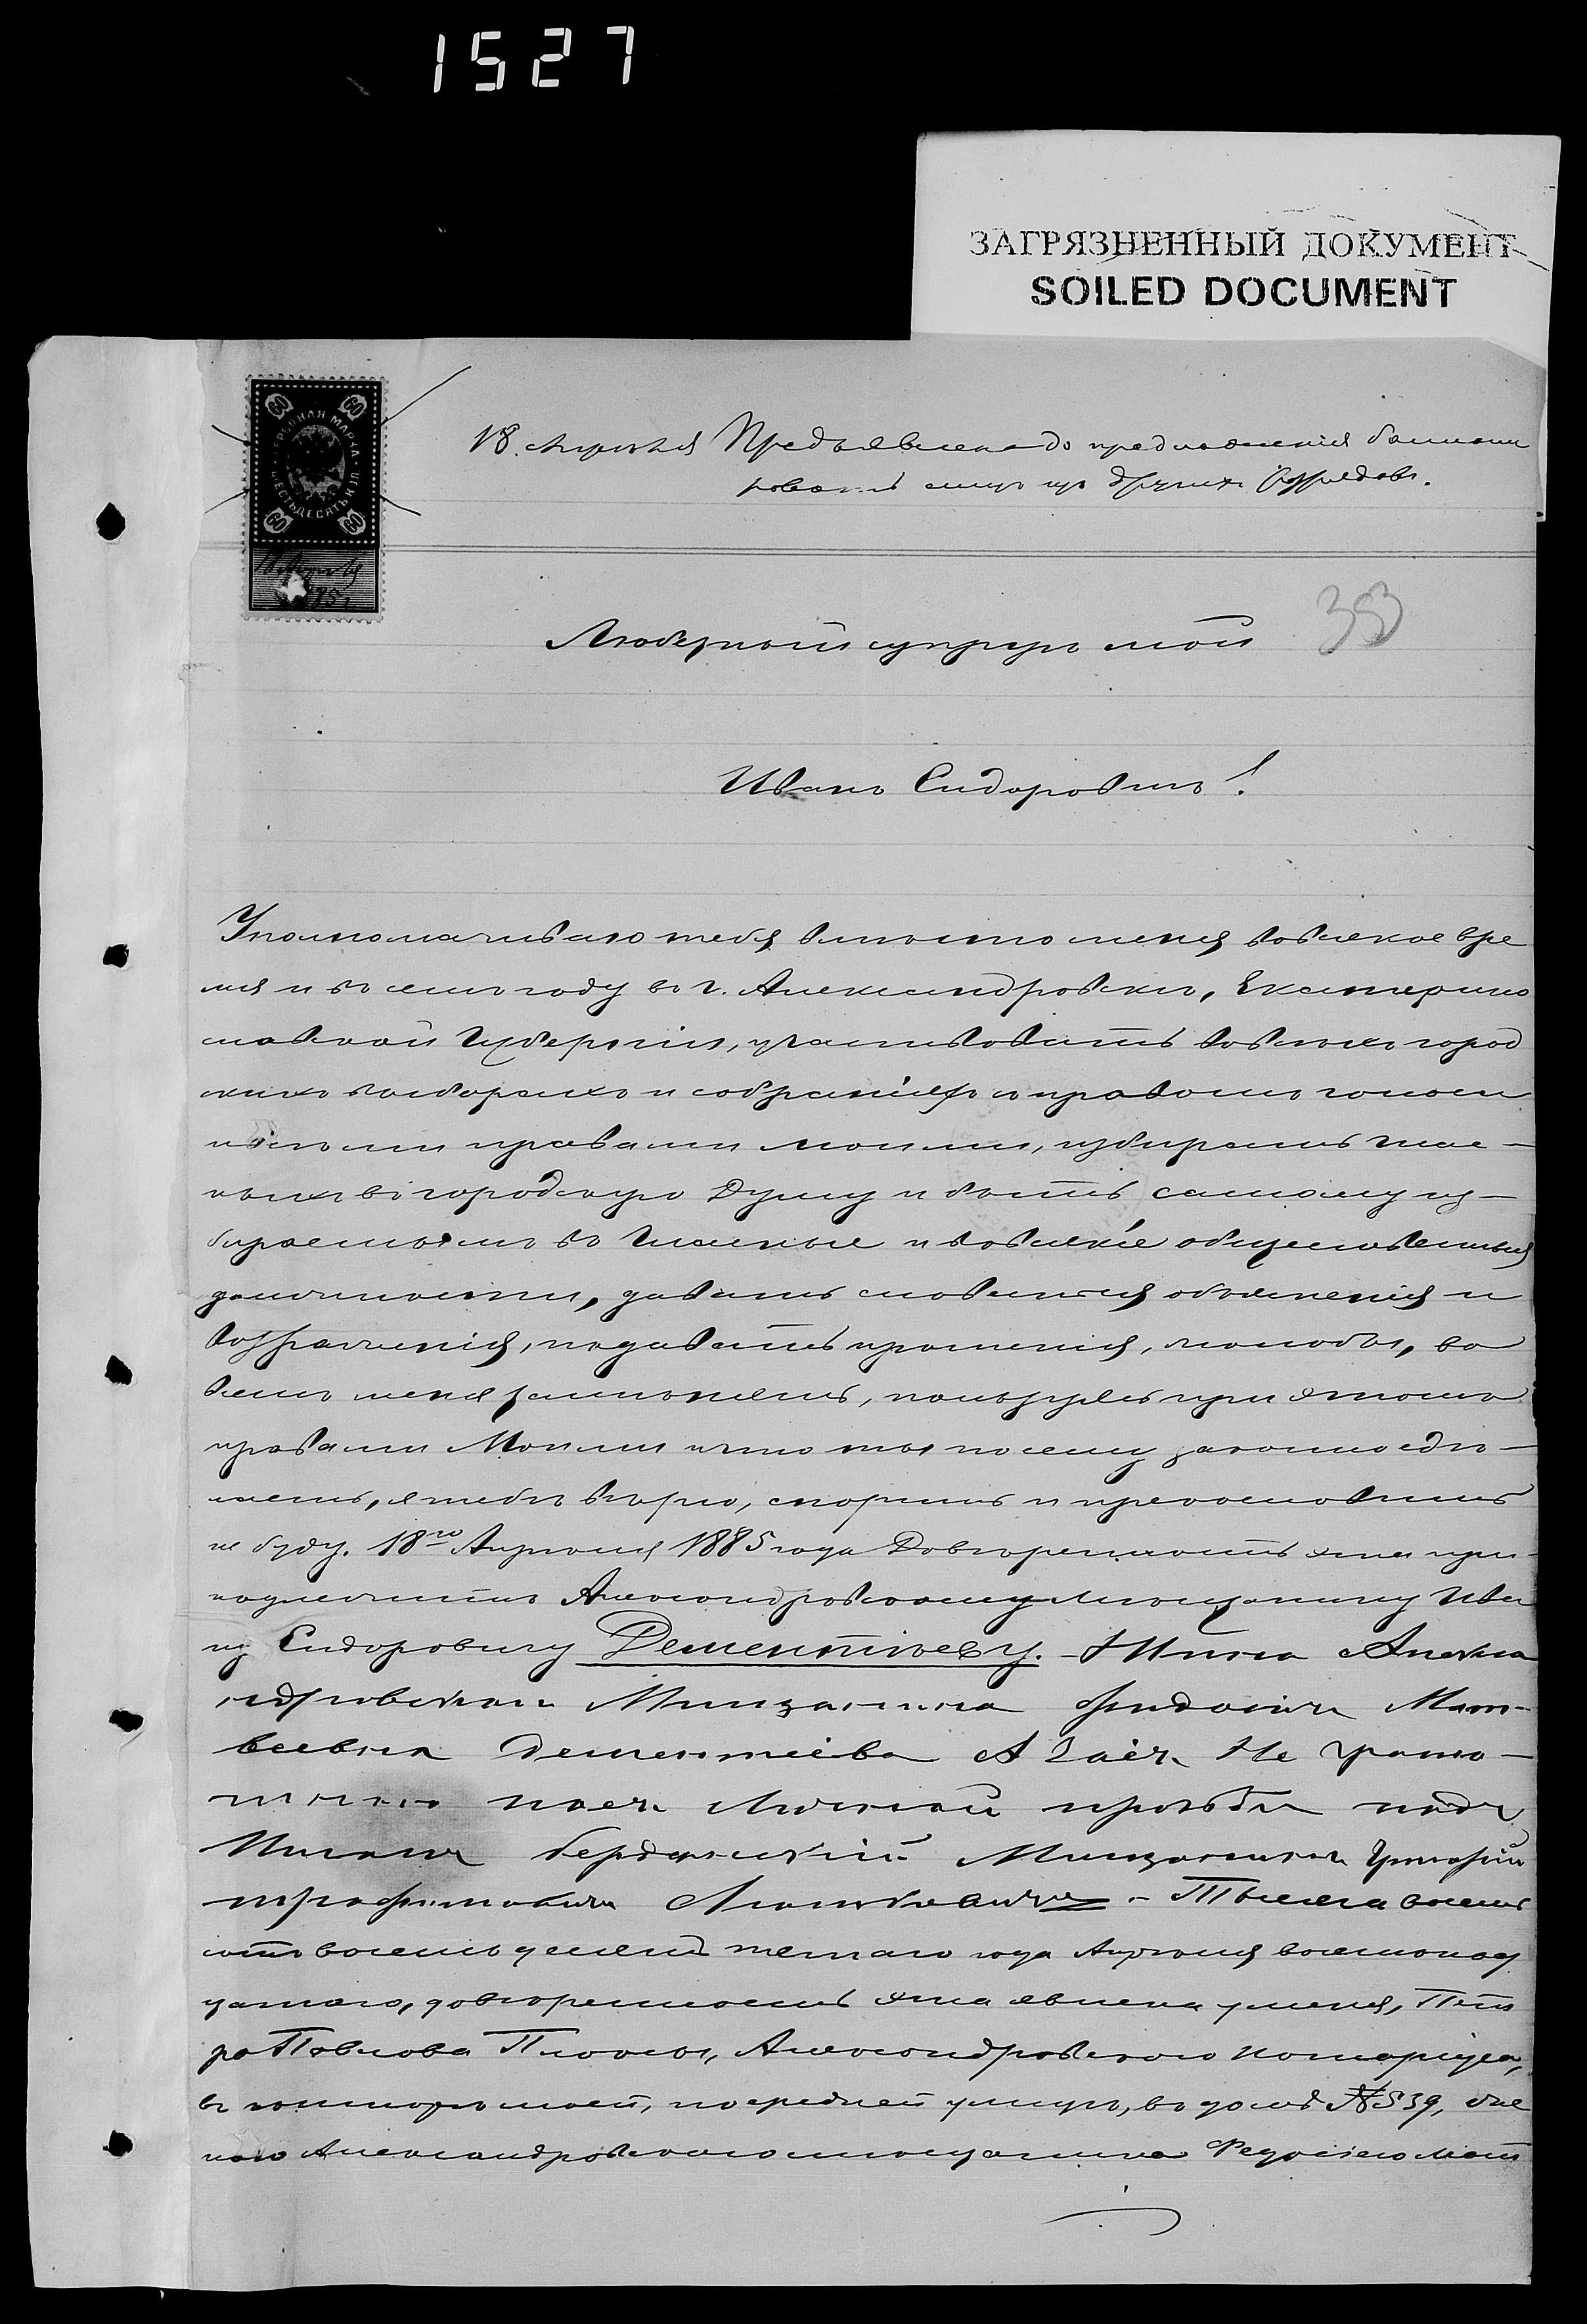 1527
ЗАГРЯЗНЕННЫЙ ДОКУМЕНТ
SOILED DOCUMENT
60 60
ГЕРБОВАЯ МАРКА
ШЕСТЬДЕСЯТЬ КОП.
60 60
18 Апрѣля Предъявлена до предложенія баллоти
ровать лицъ изъ другихъ разрядовъ.
353
Любезный супругъ мой
Иванъ Сидоровичъ!
Уполномачиваю тебя, вмѣсто меня во всякое вре
мя и въ семъ году въ г. Александровскѣ, Екатерино
славской Губерніи, участвовать во всѣхъ город
скихъ выборахъ и собраніяхъ съ правомъ голоса
и всѣми правами моими, избирать глас-
ныхъ въ городскую Думу и быть самому из-
бираемымъ въ Гласные и во всякіе общественныя
должности, давать словесныя объясненія и
возраженія, подавать прошенія, жалобы, во
всемъ меня замѣнять, пользуясь при этомъ
правами Моими и что ты по сему законно сдѣ-
лаешь, я тебѣ вѣрю, спорить и прекословить
не буду. 18го Апрѣля 1885 года Довѣренность эта при-
надлежитъ Александровскому Мѣщанину Ива
ну Сидоровичу Дементьеву. - Жина Алекса
ндровскаи Мищанина Фидосия Мат-
веевна Дементиева А Заея Не грамо-
тною поея Личной прозьби подъ
Писалъ бердянскій Мищанинъ Григорий
трофимовичъ . - Тысяча восемь
сотъ восемьдесятъ пятаго года Апрѣля восемнад
цатаго, довѣренность эта явлена у меня, Пет
ра Павлова , Александровскаго Нотаріуса,
въ конторѣ моей, по средней улицѣ, въ домѣ № 539, же
ною Александровскаго мѣщанина Федосіею Мат